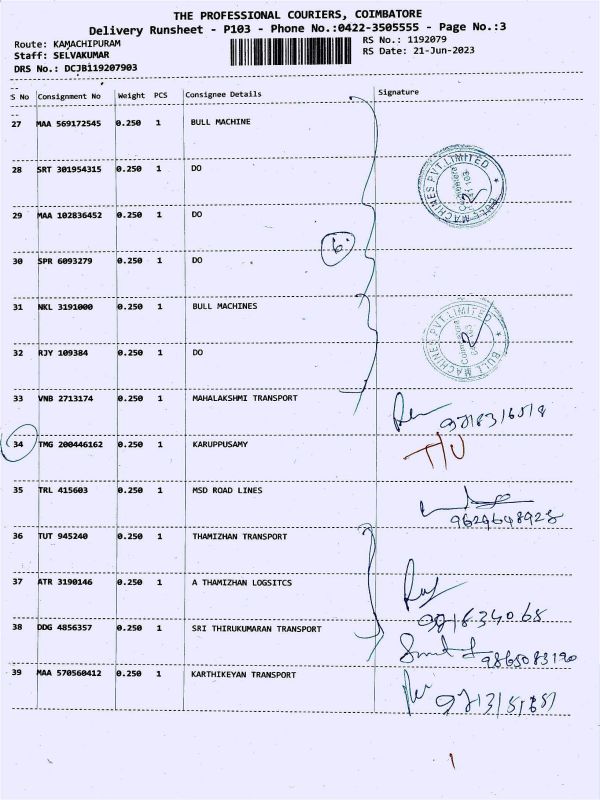 THE PROFESSIONAL COURIERS, COIMBATORE
Delivery Runsheet - P103 - Phone No.:0422-3505555 - Page No.:3
Route: KAMACHIPURAM RS No.: 1192079
Staff: SELVAKUMAR RS Date: 21-Jun-2023
DRS No.: DCJB119207903
S No Consignment No Weight PCS Consignee Details Signature
27 MAA 569172545 0.250 1 BULL MACHINE
28 SRT 301954315 0.250 1 DO
BULL MACHINES PVT LIMITED
29 MAA 102836452 0.250 1 DO
6
30 SPR 6093279 0.250 1 DO
31 NKL 3191000 0.250 1 BULL MACHINES
BULL MACHINES PVT LIMITED
32 RJY 109384 0.250 1 DO
33 VNB 2713174 0.250 1 MAHALAKSHMI TRANSPORT
34 TMG 200446162 0.250 1 KARUPPUSAMY T/U
35 TRL 415603 0.250 1 MSD ROAD LINES
9629648928
36 TUT 945240 0.250 1 THAMIZHAN TRANSPORT
37 ATR 3190146 0.250 1 A THAMIZHAN LOGSITCS
38 DDG 4856357 0.250 1 SRI THIRUKUMARAN TRANSPORT
39 MAA 570560412 0.250 1 KARTHIKEYAN TRANSPORT